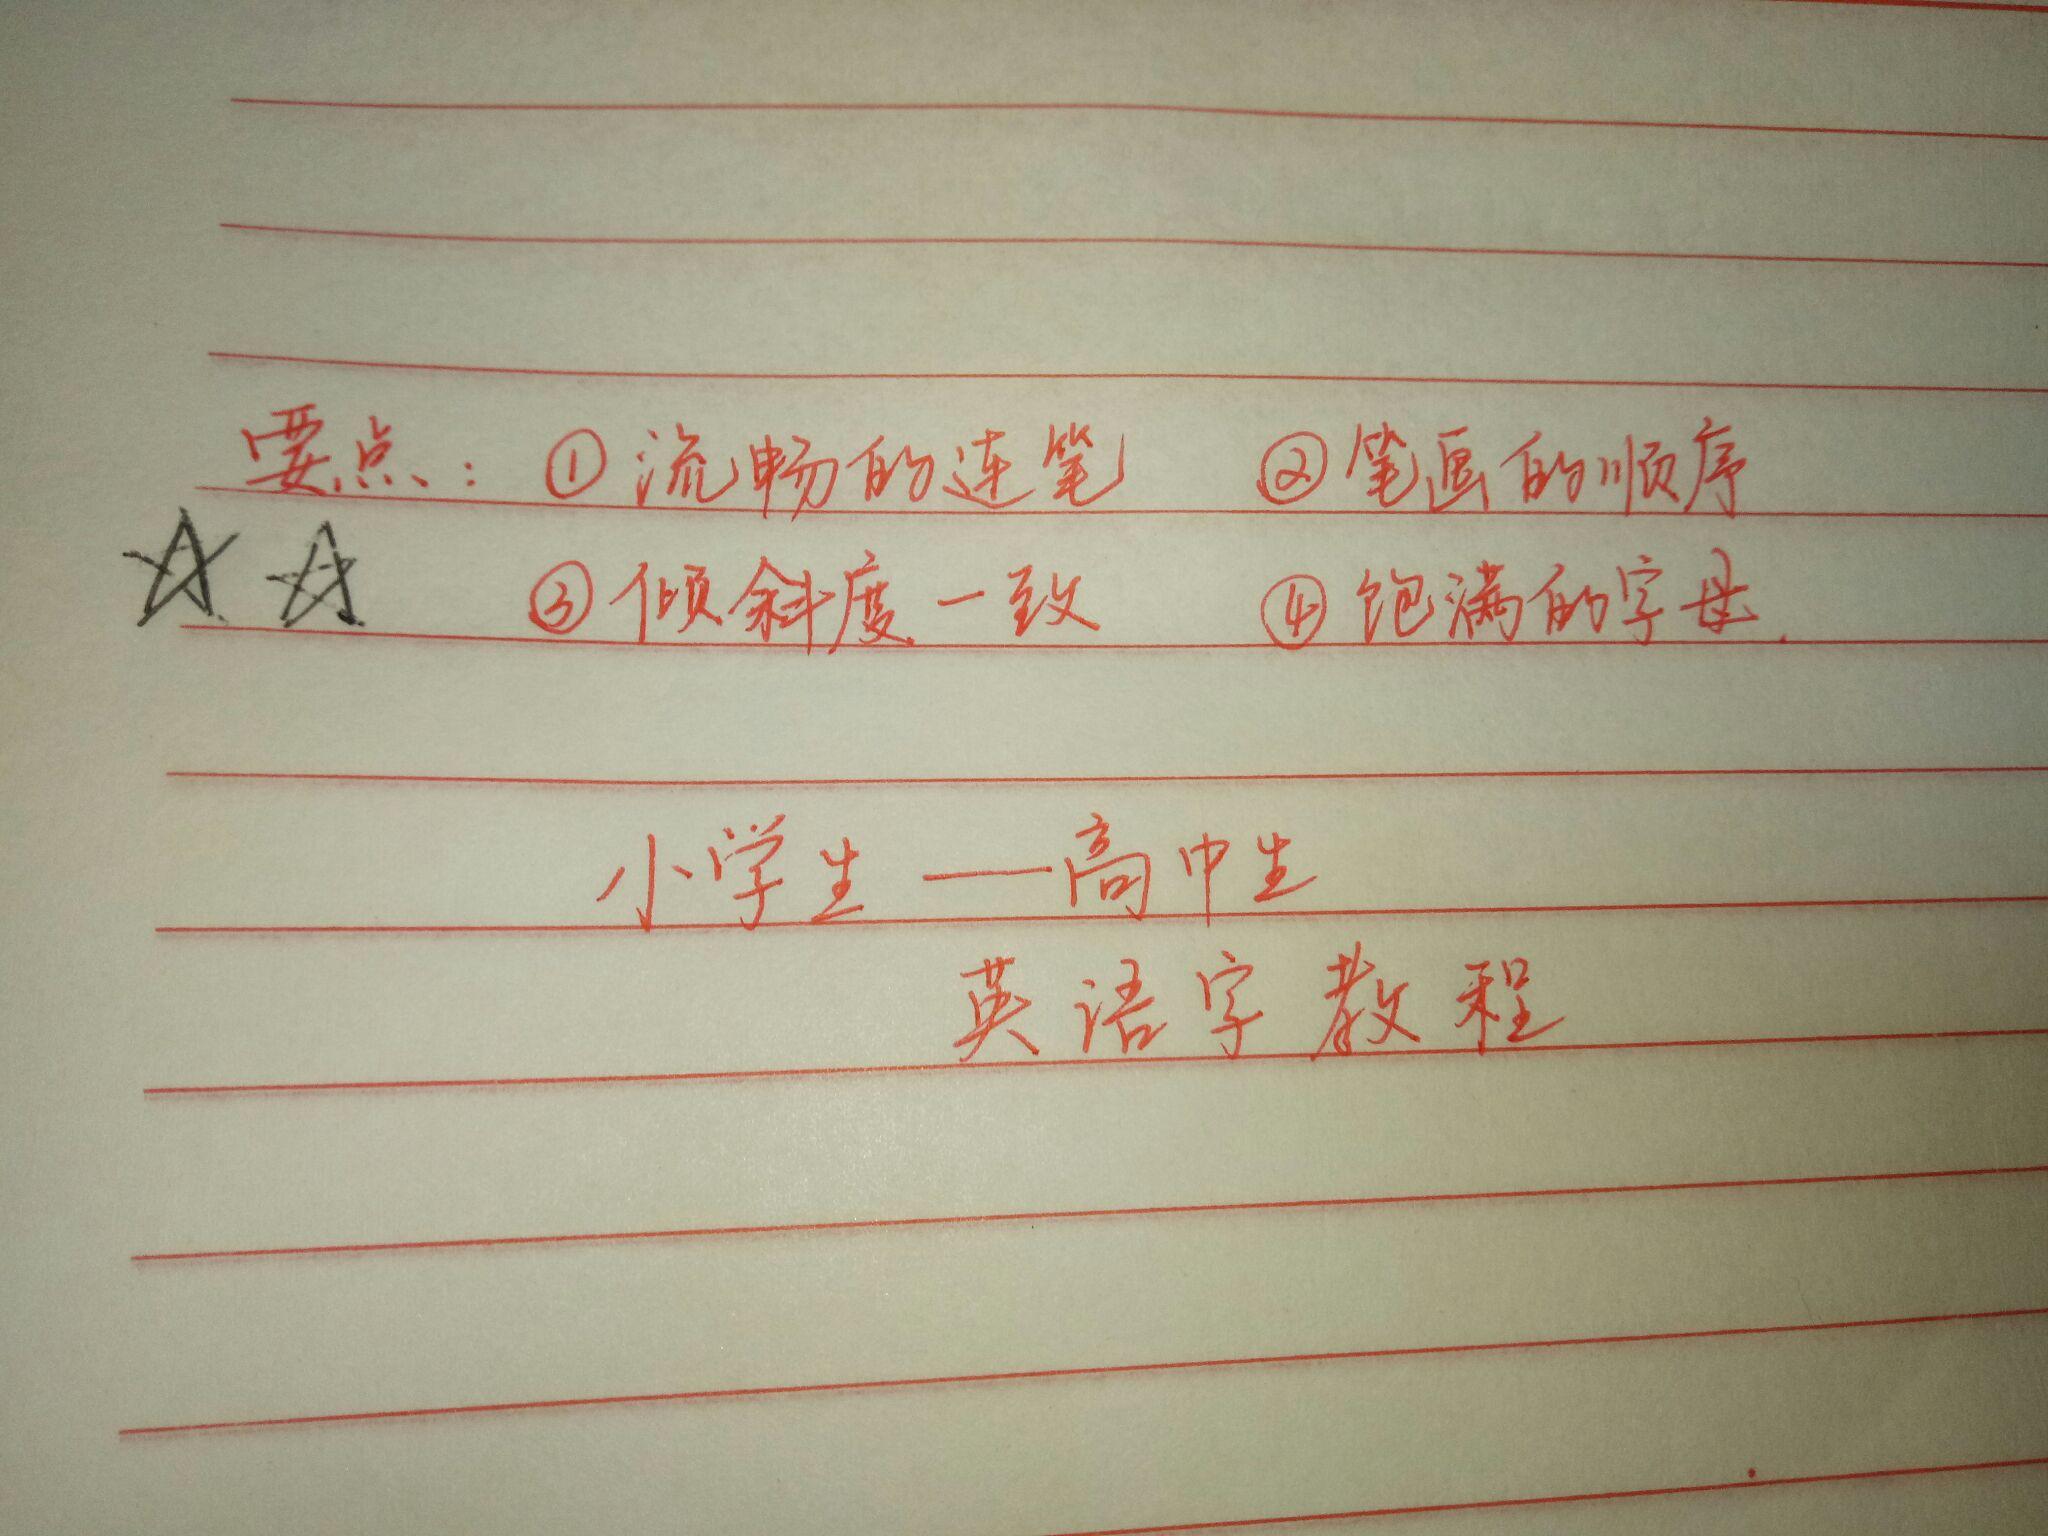 要点：①流畅的连笔 ②笔画的顺序
③倾斜度一致 ④饱满的字母.
小学生——高中生
英语字教程